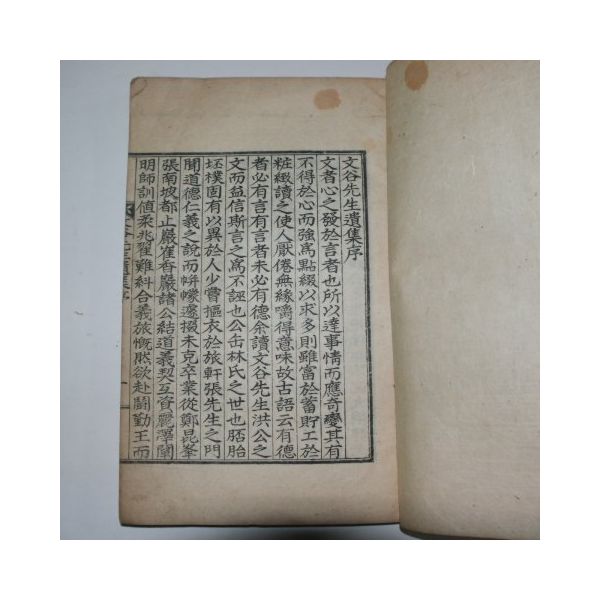 文谷先生遺集序
文者心之發於言者也所以達事情而應奇變其有
不得於心而強爲點綴以求多則雖富於蓄貯工於
粧緻讀之使人厭倦無緣嚼得意味故古語云有德
者必有言有言者未必有德余讀文谷先生洪公之
文而益信斯言之爲不誣也公缶林氏之世也胚胎
坯樸固有以異於人少嘗摳衣於旅軒張先生之門
聞道德仁義之說而帡幪遽掇未克卒業從鄭昆峯
張南坡都止巖崔香巖諸公結道義契互資麗澤闡
明師訓値柔兆翟難糾合義旅慨然欲赴鬪勤王而
文谷先生遺集序
一